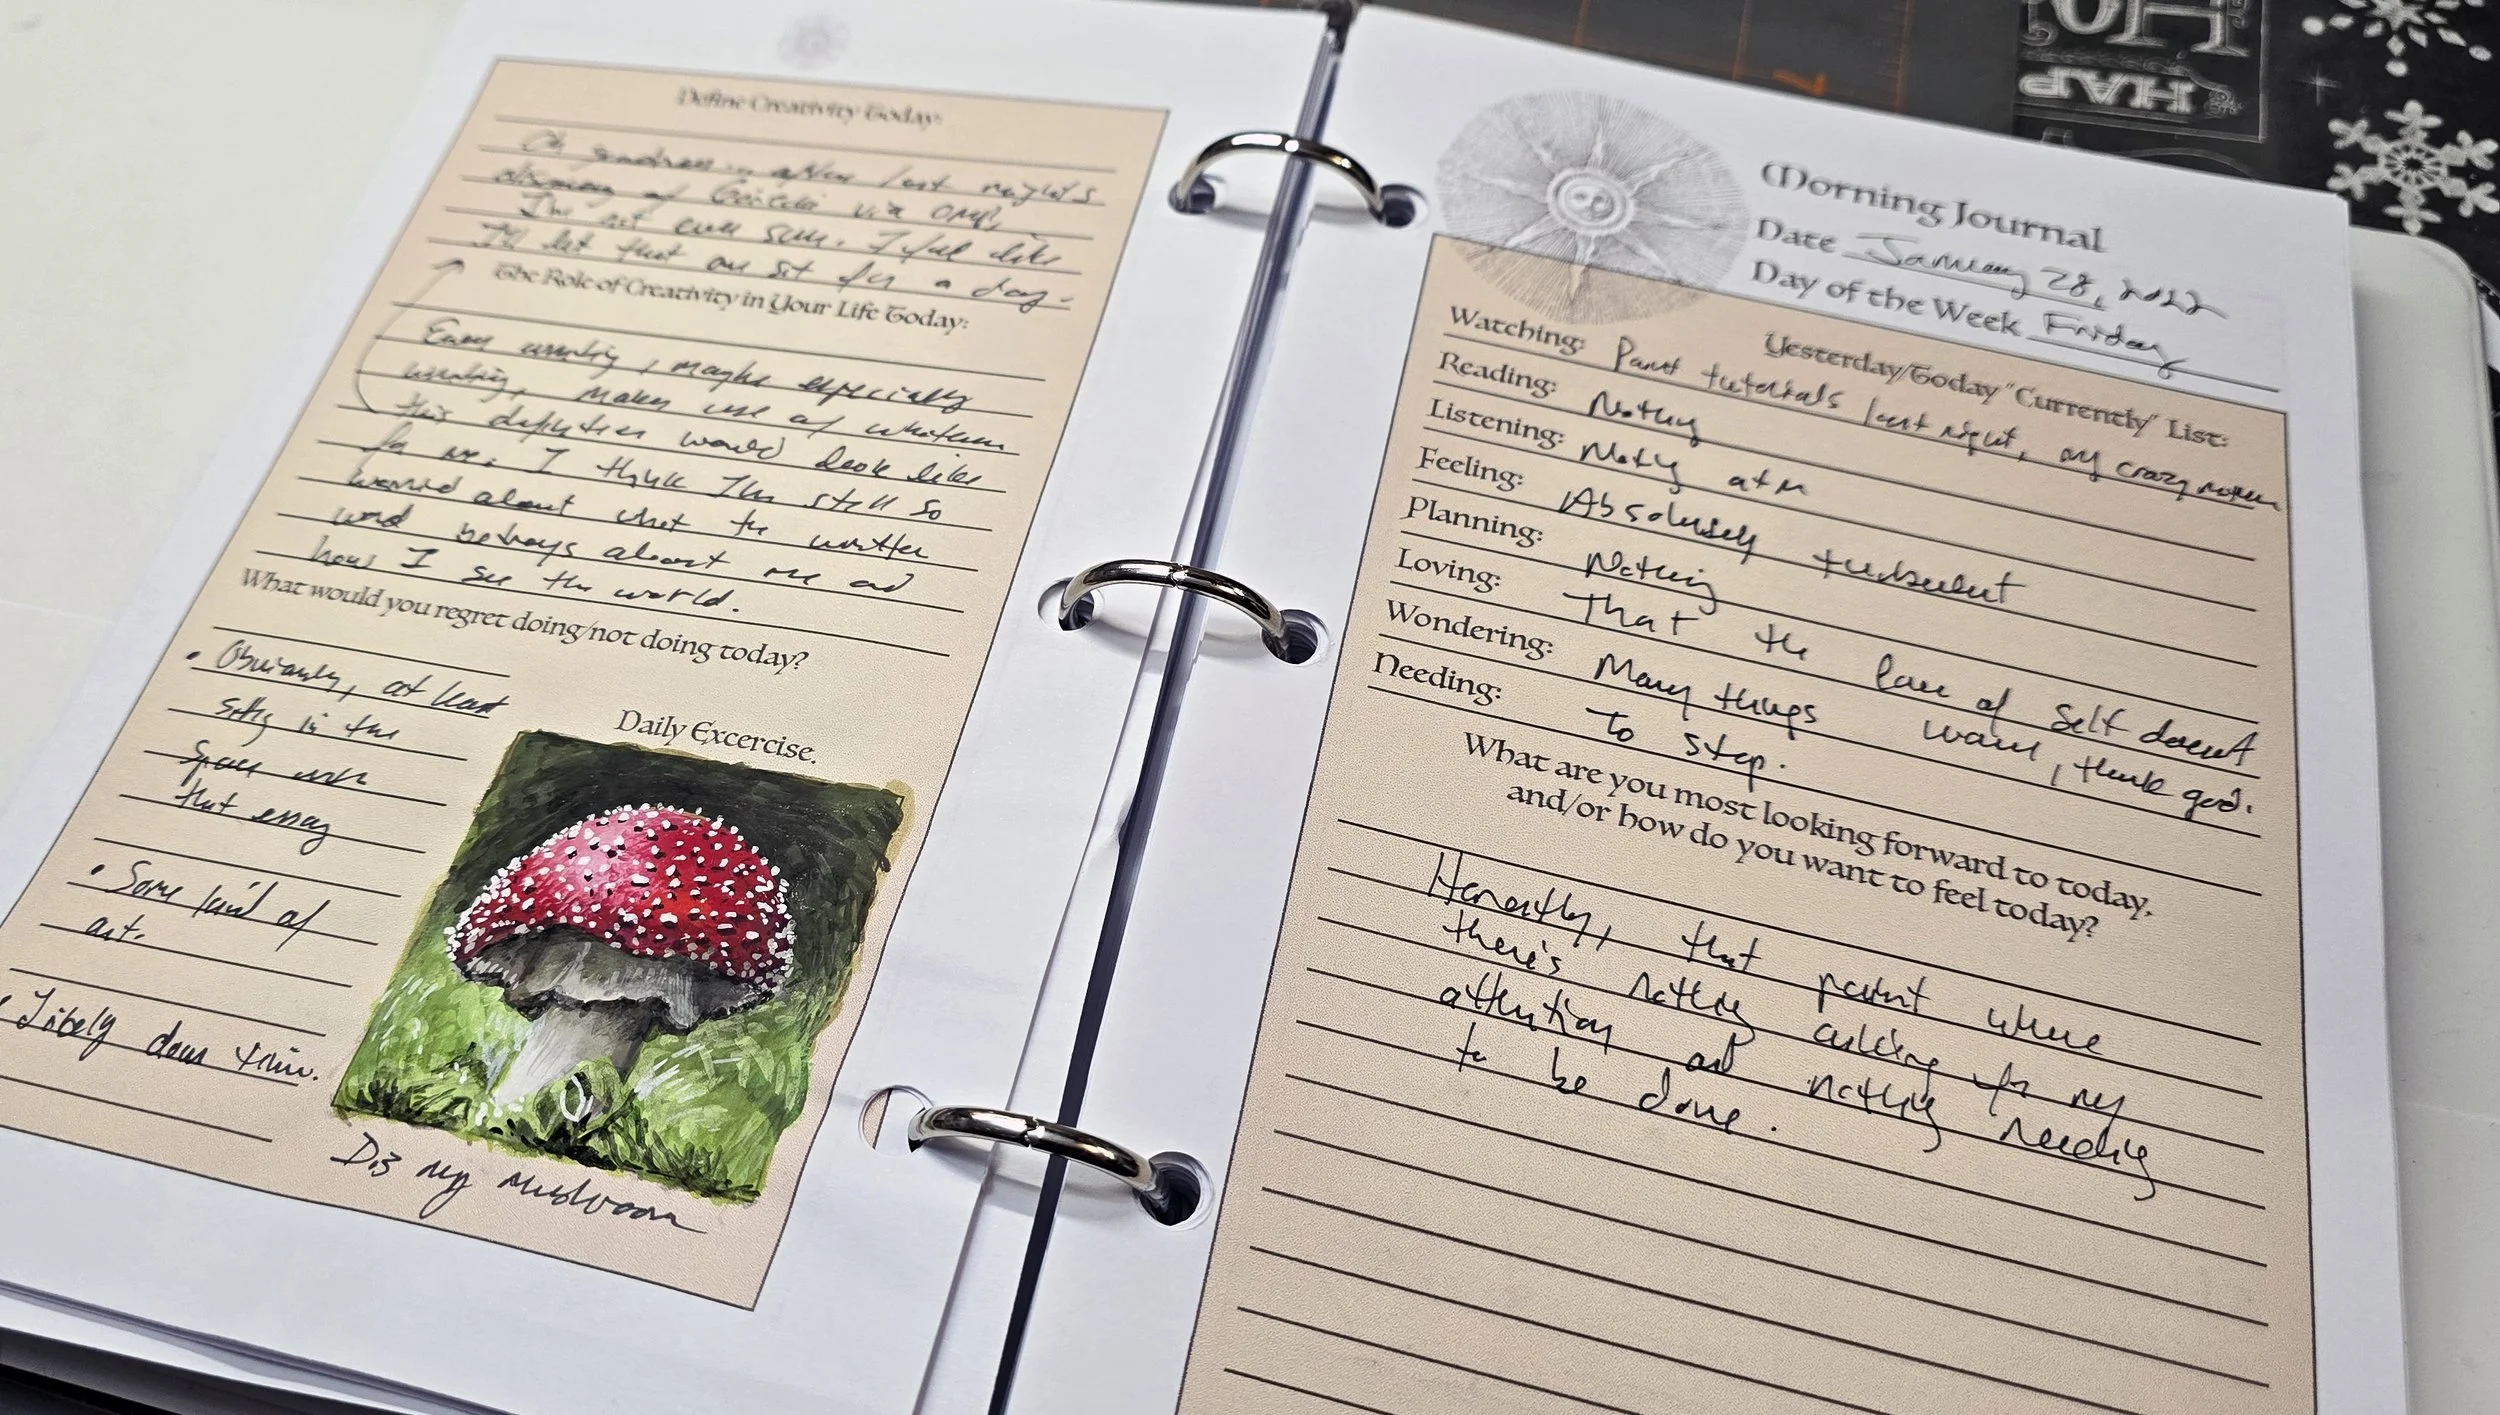 Define Creativity Today:
Oh goodness... after last night's
discovery of via
I'm not even sure. I feel like
I'll let that one sit for a day.
The Role of Creativity in Your Life Today:
Even writing, maybe especially
writing, makes use of whatever
this definition would look like
for me. I think I'm still so
worried about what the written
word betrays about me and
how I see the world.
What would you regret doing/not doing today?
• Obviously, at least
sitting in the
space with
that essay
• Some kind of
art.
• Likely down time.
Daily Excercise.
Dis my mushroom
Morning Journal
Date January 28, 2022
Day of the Week Friday
Yesterday/Today "Currently" List:
Watching: Paint tutorials last night, my crazy
Reading: Nothing
Listening: Nothing atm
Feeling: Absolutely turbulent
Planning: Nothing
Loving: That the of self doesn't
Wondering: Many things , thank god.
Needing: To stop.
What are you most looking forward to today,
and/or how do you want to feel today?
Honestly, that point where
there's nothing calling for my
attention and nothing needing
to be done.
HAP